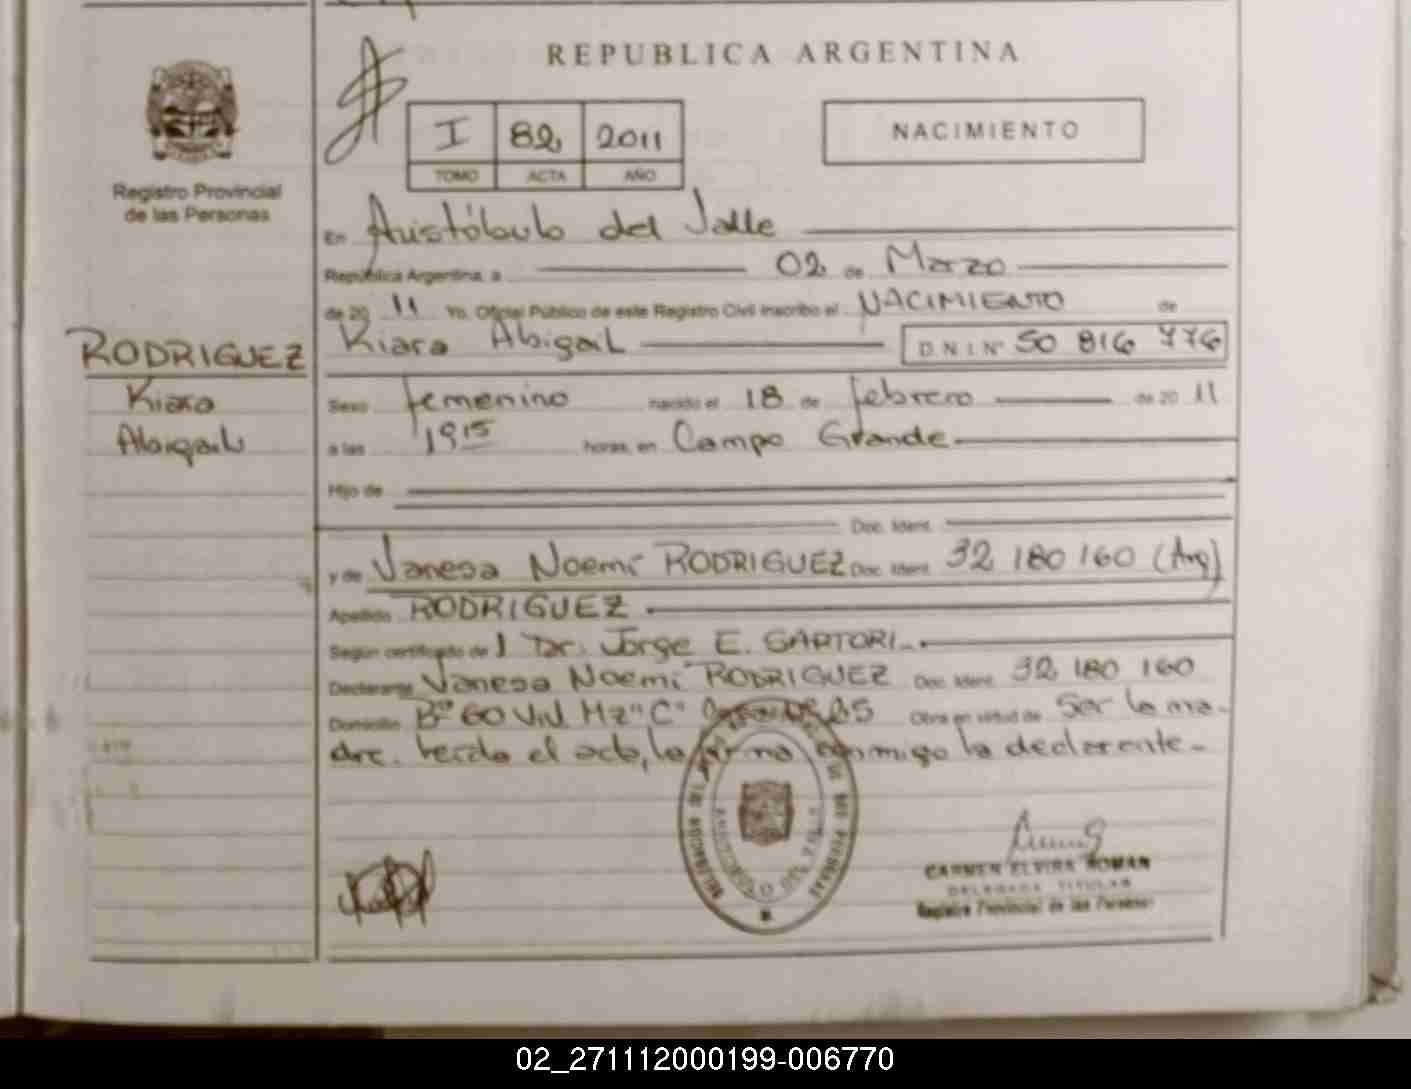 REPUBLICA ARGENTINA
I 82 2011
TOMO ACTA AÑO
NACIMIENTO
Registro Provincial
de las Personas
RODRIGUEZ
Kiara
Abigail
En Aristóbulo del Valle
República Argentina, a 02 de Marzo
de 20 11 Yo, Oficial Público de este Registro Civil inscribo el NACIMIENTO de
Kiara Abigail D.N.I. Nº 50 816 776
Sexo femenino nacido el 18 de febrero de 20 11
a las 19 15 horas, en Campo Grande.
Hijo de
Doc. Ident.
y de Vanesa Noemí RODRIGUEZ Doc. Ident. 32 180 160 (Arg)
Apellido RODRIGUEZ.
Según certificado de Dr. Jorge E. SARTORI.
Declarante Vanesa Noemí RODRIGUEZ Doc. Ident. 32 180 160
Domicilio Bº 60 Viv. Mz "C" Obra en virtud de Ser la ma-
dre. Leída el acta, la firma conmigo la declarante.-
CARMEN ELVIRA ROMAN
DELEGADA TITULAR
Registro Provincial de las Personas
02_271112000199-006770